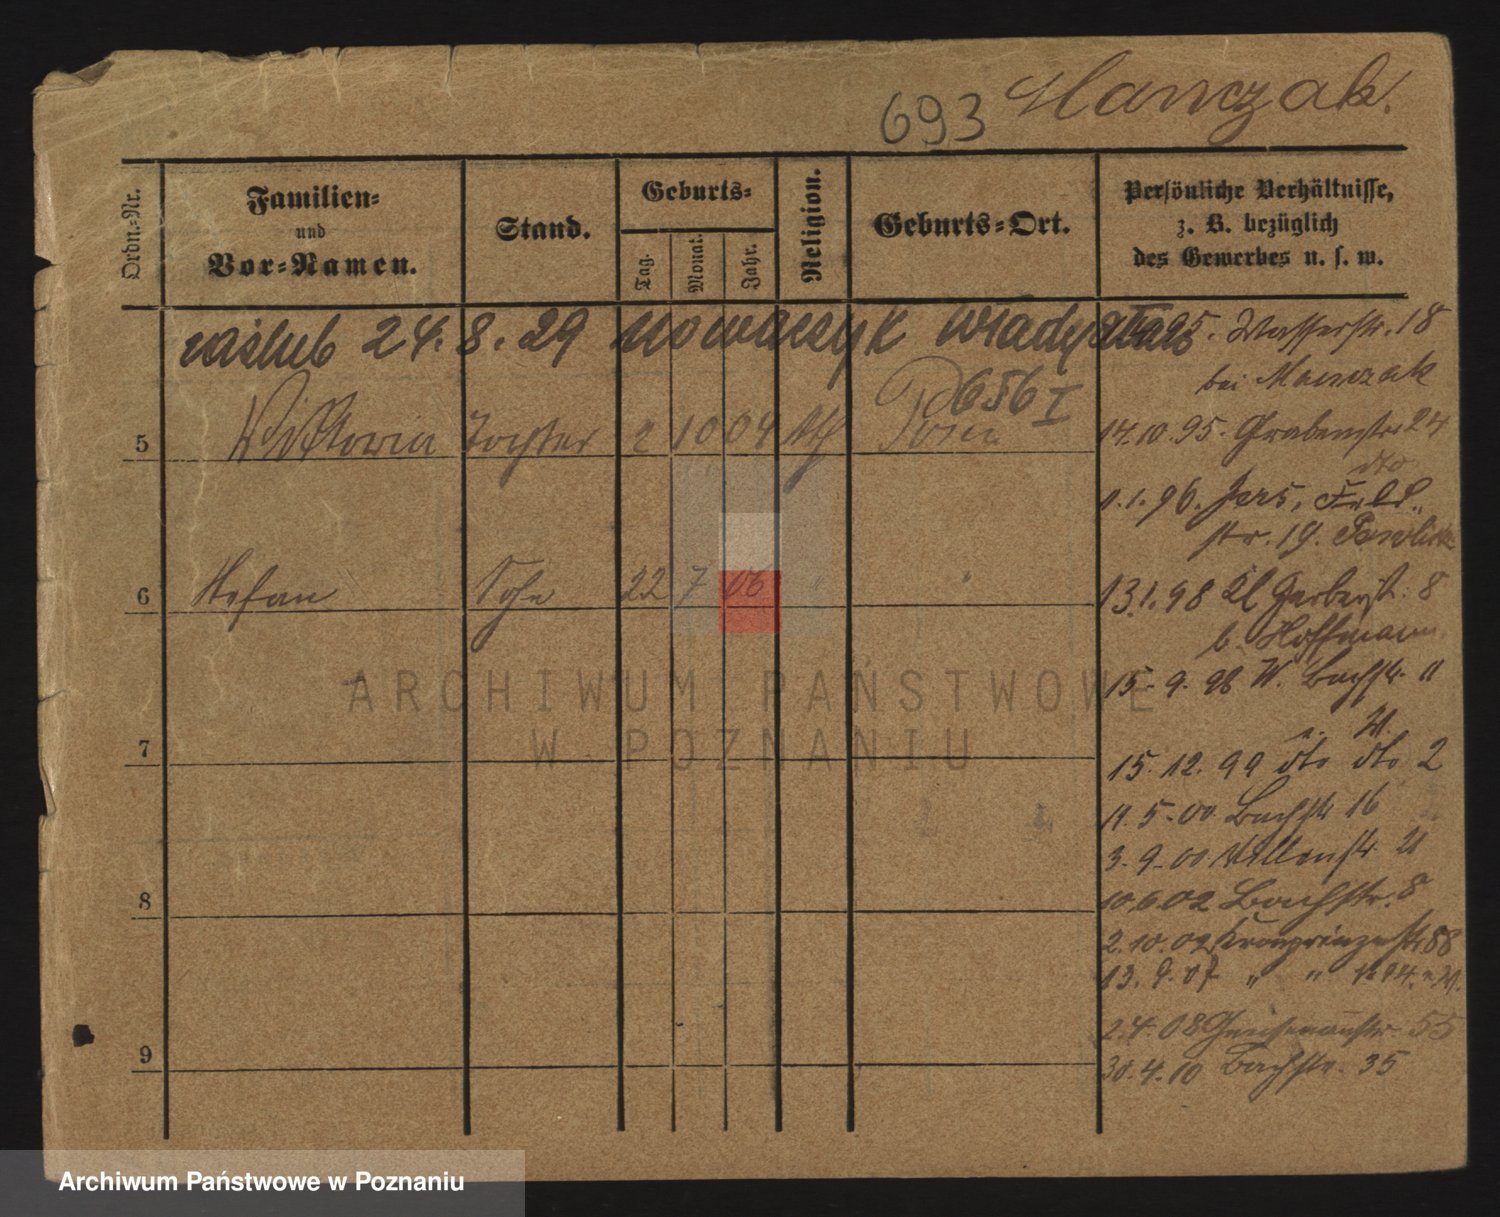 693 Manczak.
Ordn.-Nr.
Familien-
und
Vor-Namen.
Stand.
Geburts-
Tag.
Monat.
Jahr.
Religion.
Geburts-Ort.
Persönliche Verhältnisse,
z. B. bezüglich
des Gewerbes u. s. w.
ożślub 24.8.29 Nowaczyk Władysław
656 I
5 Wiktoria Tochter 2 10 04 kth Posen
6 Stefan Sohn 22 7 06 " "
7
8
9
95. Wasserstr. 18
bei Manczak
14.10.95. Grabenstr. 24
dto
1.1.96. Jers, Feld
str. 19.
13.1.98 Kl Gerberst. 8
b. Hoffmann
15.9.98 W. Bachstr. 11
15.12.99 dto dto 2
11.5.00 Bachstr 16
3.9.00 str. 21
10.6.02 Bachstr. 8
2.10.02 Kronprinzenstr 88
13.9.07 " " 94.
2.4.08 Gneisenaustr. 55
30.4.10 Bachstr. 35
ARCHIWUM PAŃSTWOWE
W POZNANIU
Archiwum Państwowe w Poznaniu